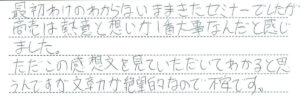 最初わけのわからないままきたセミナーでしたが
商売は熱意と想いが1番大事なんだと感じ
ました。
ただこの感想文を見ていただいてわかると思
うんですが文章力が絶望的なので不安です。